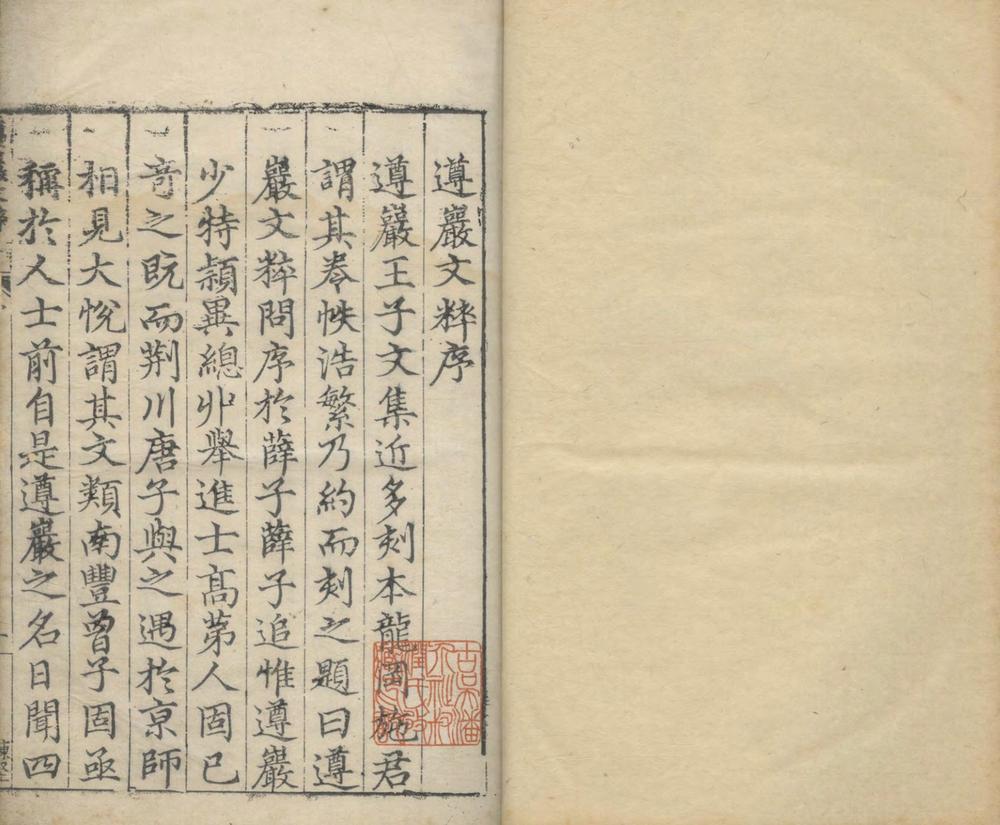 遵巖文粹序
遵巖王子文集近多刻本龍岡施君
謂其卷帙浩繁乃約而刻之題曰遵
巖文粹問序於薛子薛子追惟遵巖
少特穎異總丱舉進士高苐人固已
竒之既而荆川唐子與之遇於京師
相見大悅謂其文類南豐曾子固亟
稱於人士前自是遵巖之名日聞四